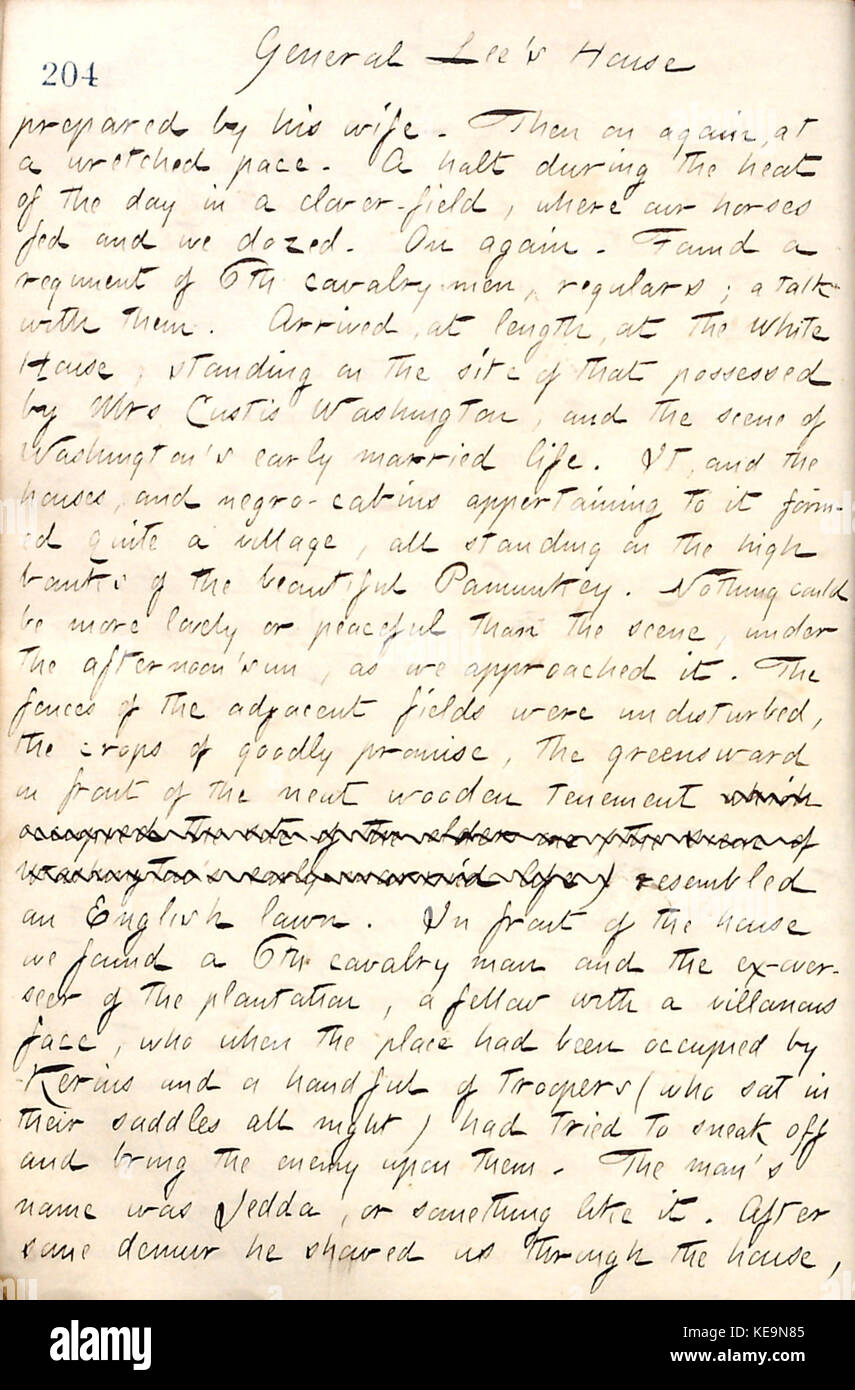 204
General Lee's House
prepared by his wife. Then on again, at
a wretched pace. A halt during the heat
of the day in a clover-field, where our horses
fed and we dozed. On again. Found a
regiment of 6th cavalry men, regulars; a talk
with them. Arrived, at length, at the White
House, standing on the site of that possessed
by Mrs Custis Washington, and the scene of
Washington's early married life. It, and the
houses, and negro-cabins appertaining to it form-
ed quite a village, all standing on the high
banks of the beautiful Pamunkey. Nothing could
be more lovely or peaceful than the scene, under
the afternoon sun, as we approached it. The
fences of the adjacent fields were undisturbed,
the crops of goodly promise, the greensward
in front of the neat wooden tenement which
occupied the site of the elder one (the scene of
Washington's early married life) resembled
an English lawn. In front of the house
we found a 6th cavalry man and the ex-over-
seer of the plantation, a fellow with a villanous
face, who when the place had been occupied by
Kerins and a handful of troopers (who sat in
their saddles all night) had tried to sneak off
and bring the enemy upon them. The man's
name was Jedda, or something like it. After
some demur he showed us through the house,
alamy
Image ID: KE9N85
www.alamy.com